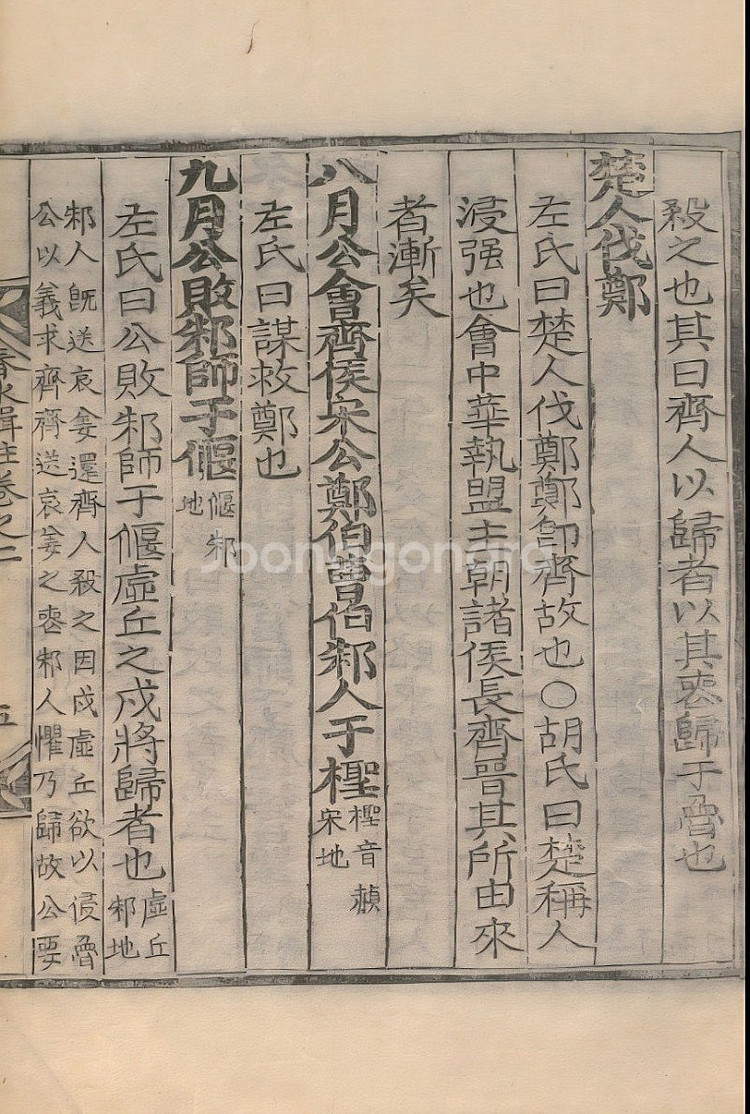 殺之也其曰齊人以歸者以其喪歸于魯也
楚人伐鄭
左氏曰楚人伐鄭鄭卽齊故也○胡氏曰楚稱人
浸强也會中華執盟主朝諸侯長齊晉其所由來
者漸矣
八月公會齊侯宋公鄭伯曹伯邾人于檉檉音赬
宋地
左氏曰謀救鄭也
九月公敗邾師于偃偃邾
地
左氏曰公敗邾師于偃虛丘之戍將歸者也虛丘
邾地
邾人旣送哀姜還齊人殺之因戍虛丘欲以侵魯
公以義求齊齊送哀姜之喪邾人懼乃歸故公要
春秋輯註卷之二
五
Joonggonara